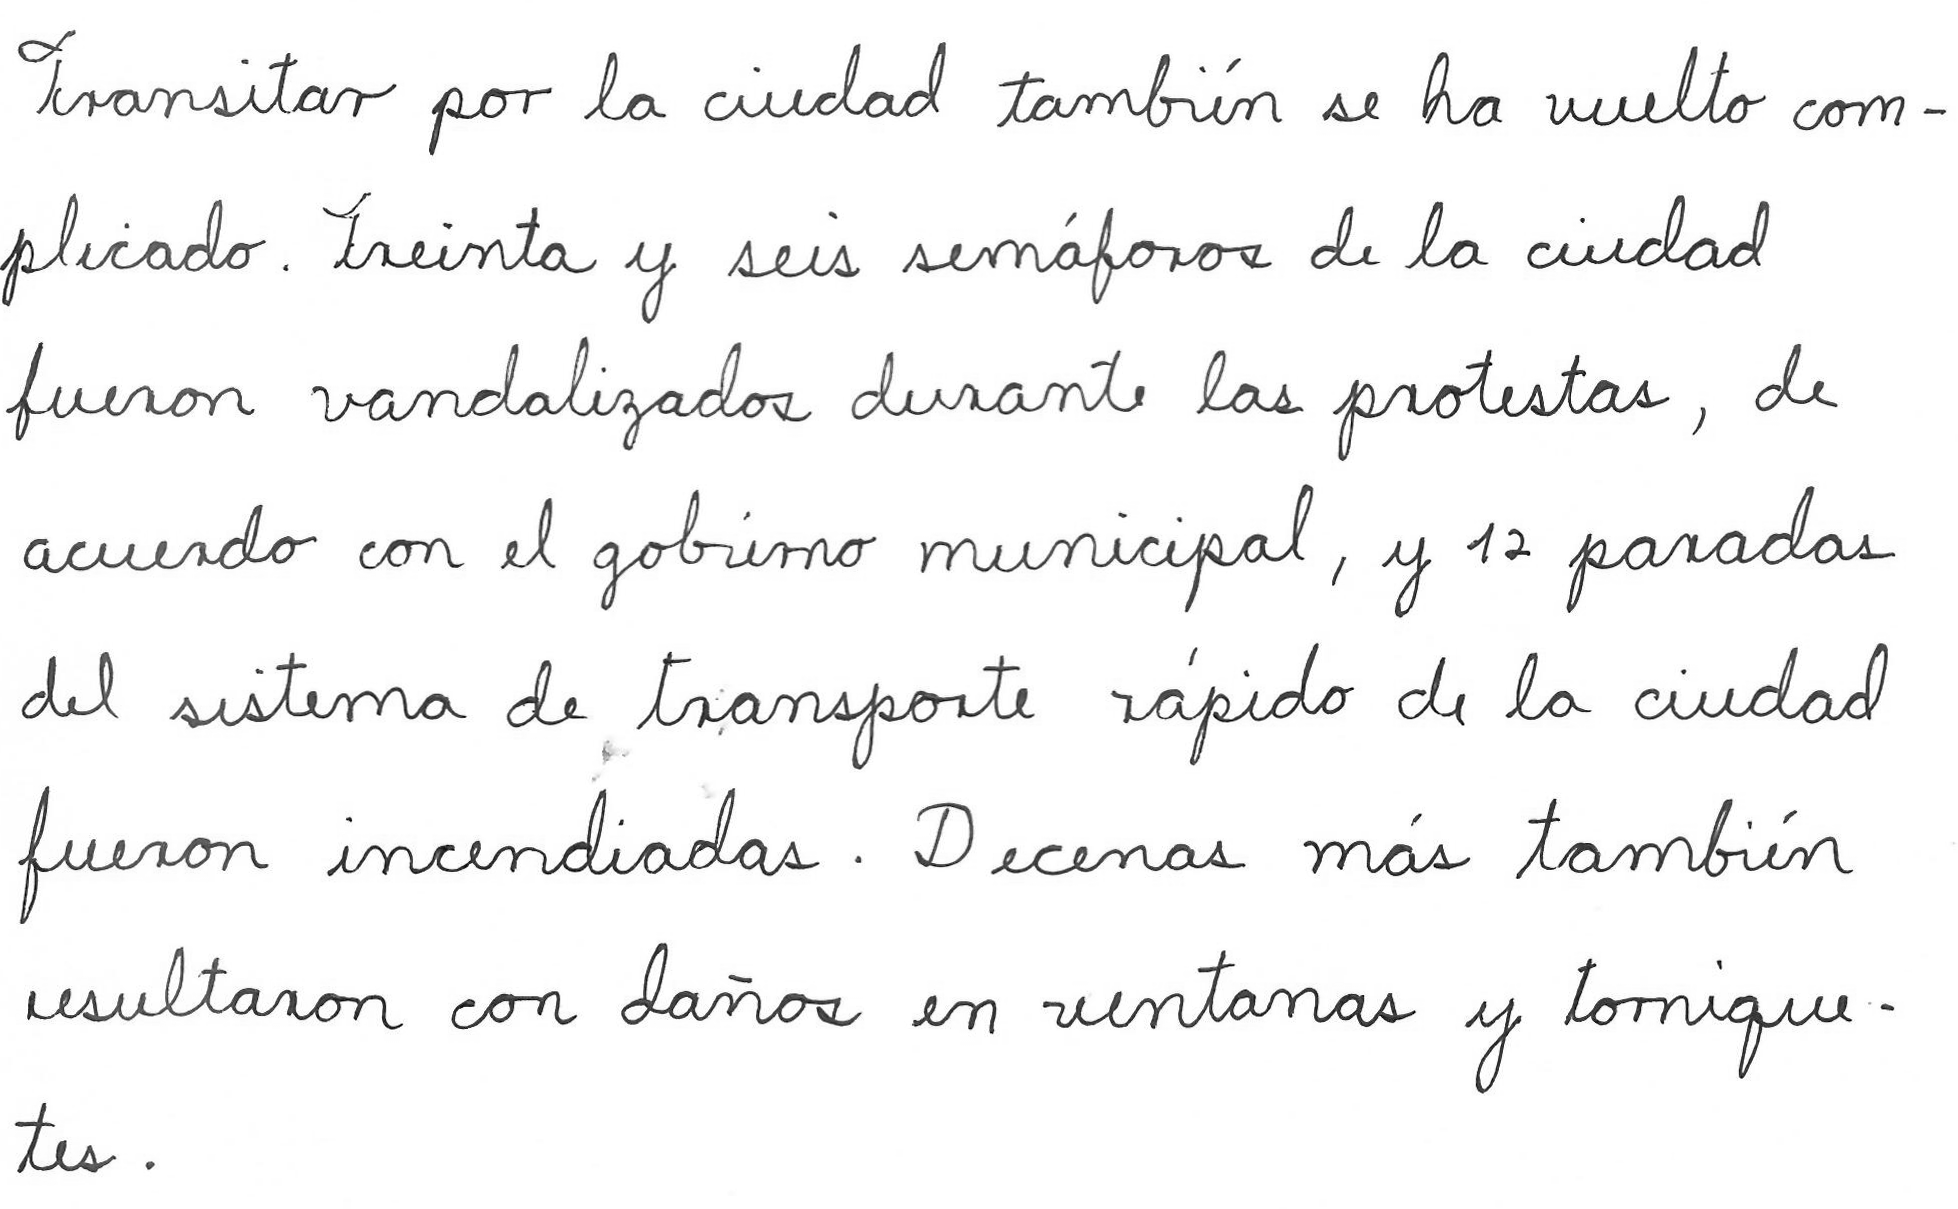 Transitar por la ciudad también se ha vuelto com-
plicado. Treinta y seis semáforos de la ciudad
fueron vandalizados durante las protestas, de
acuerdo con el gobierno municipal, y 12 paradas
del sistema de transporte rápido de la ciudad
fueron incendiadas. Decenas más también
resultaron con daños en ventanas y tornique-
tes.